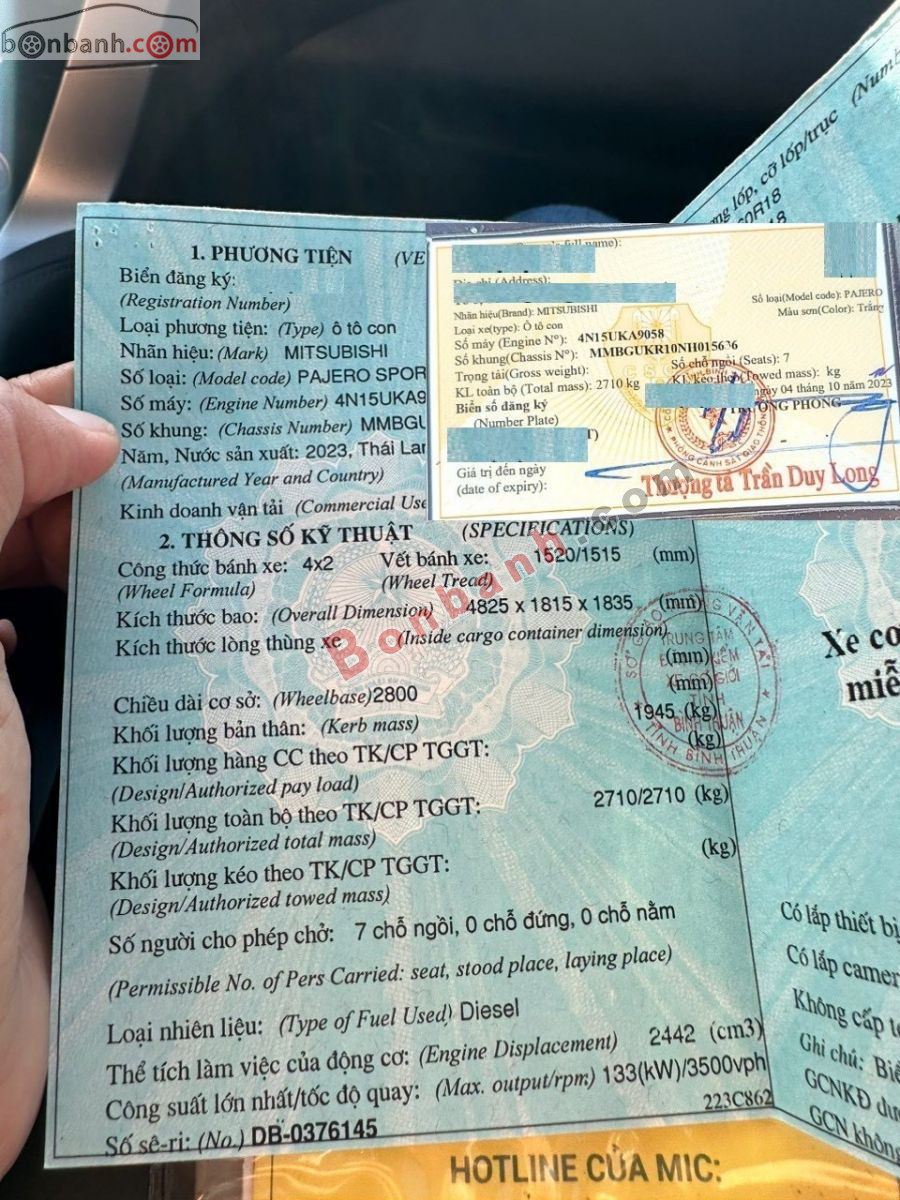 bonbanh.com
(Num
ng lốp, cỡ lốp/trục
60R18
18
1. PHƯƠNG TIỆN (VE
Biển đăng ký:
(Registration Number)
Loại phương tiện: (Type) ô tô con
Nhãn hiệu: (Mark) MITSUBISHI
Số loại: (Model code) PAJERO SPOR
Số máy: (Engine Number) 4N15UKA9
Số khung: (Chassis Number) MMBGU
Năm, Nước sản xuất: 2023, Thái Lan
(Manufactured Year and Country)
Kinh doanh vận tải (Commercial Use
full name):
Địa chỉ (Address):
Nhãn hiệu(Brand): MITSUBISHI
Số loại(Model code): PAJERO
Loại xe(type): Ô tô con
Màu sơn(Color): Trắng
Số máy (Engine Nº): 4N15UKA9058
Số khung(Chassis Nº): MMBGUKR10NH015636
Trọng tải(Gross weight):
Số chỗ ngồi(Seats): 7
KL toàn bộ (Total mass): 2710 kg
KL kéo theo(Towed mass): kg
Biển số đăng ký
ngày 04 tháng 10 năm 2023
(Number Plate)
TRƯỞNG PHÒNG
PHÒNG CẢNH SÁT GIAO THÔNG
Giá trị đến ngày
(date of expiry):
Thượng tá Trần Duy Long
2. THÔNG SỐ KỸ THUẬT (SPECIFICATIONS)
Công thức bánh xe: 4x2 Vết bánh xe: 1520/1515 (mm)
(Wheel Formula) (Wheel Tread)
Kích thước bao: (Overall Dimension) 4825 x 1815 x 1835 (mm)
Kích thước lòng thùng xe (Inside cargo container dimension)
(mm)
(mm)
Chiều dài cơ sở: (Wheelbase)2800
Khối lượng bản thân: (Kerb mass) 1945 (kg)
(kg)
Khối lượng hàng CC theo TK/CP TGGT:
(Design/Authorized pay load)
Khối lượng toàn bộ theo TK/CP TGGT: 2710/2710 (kg)
(Design/Authorized total mass)
(kg)
Khối lượng kéo theo TK/CP TGGT:
(Design/Authorized towed mass)
Số người cho phép chở: 7 chỗ ngồi, 0 chỗ đứng, 0 chỗ nằm
(Permissible No. of Pers Carried: seat, stood place, laying place)
Loại nhiên liệu: (Type of Fuel Used) Diesel
Thể tích làm việc của động cơ: (Engine Displacement) 2442 (cm3)
Công suất lớn nhất/tốc độ quay: (Max. output/rpm) 133(kW)/3500vph
223C862
Số sê-ri: (No.) DB-0376145
SỞ GIAO THÔNG VẬN TẢI
TRUNG TÂM
ĐĂNG KIỂM
XE CƠ GIỚI
TỈNH
BÌNH THUẬN
TỈNH BÌNH THUẬN
Bonbanh.com
Xe cơ
miễ
Có lắp thiết bị
Có lắp camer
Không cấp te
Ghi chú: Biể
GCNKĐ dư
GCN không
HOTLINE CỦA MIC: